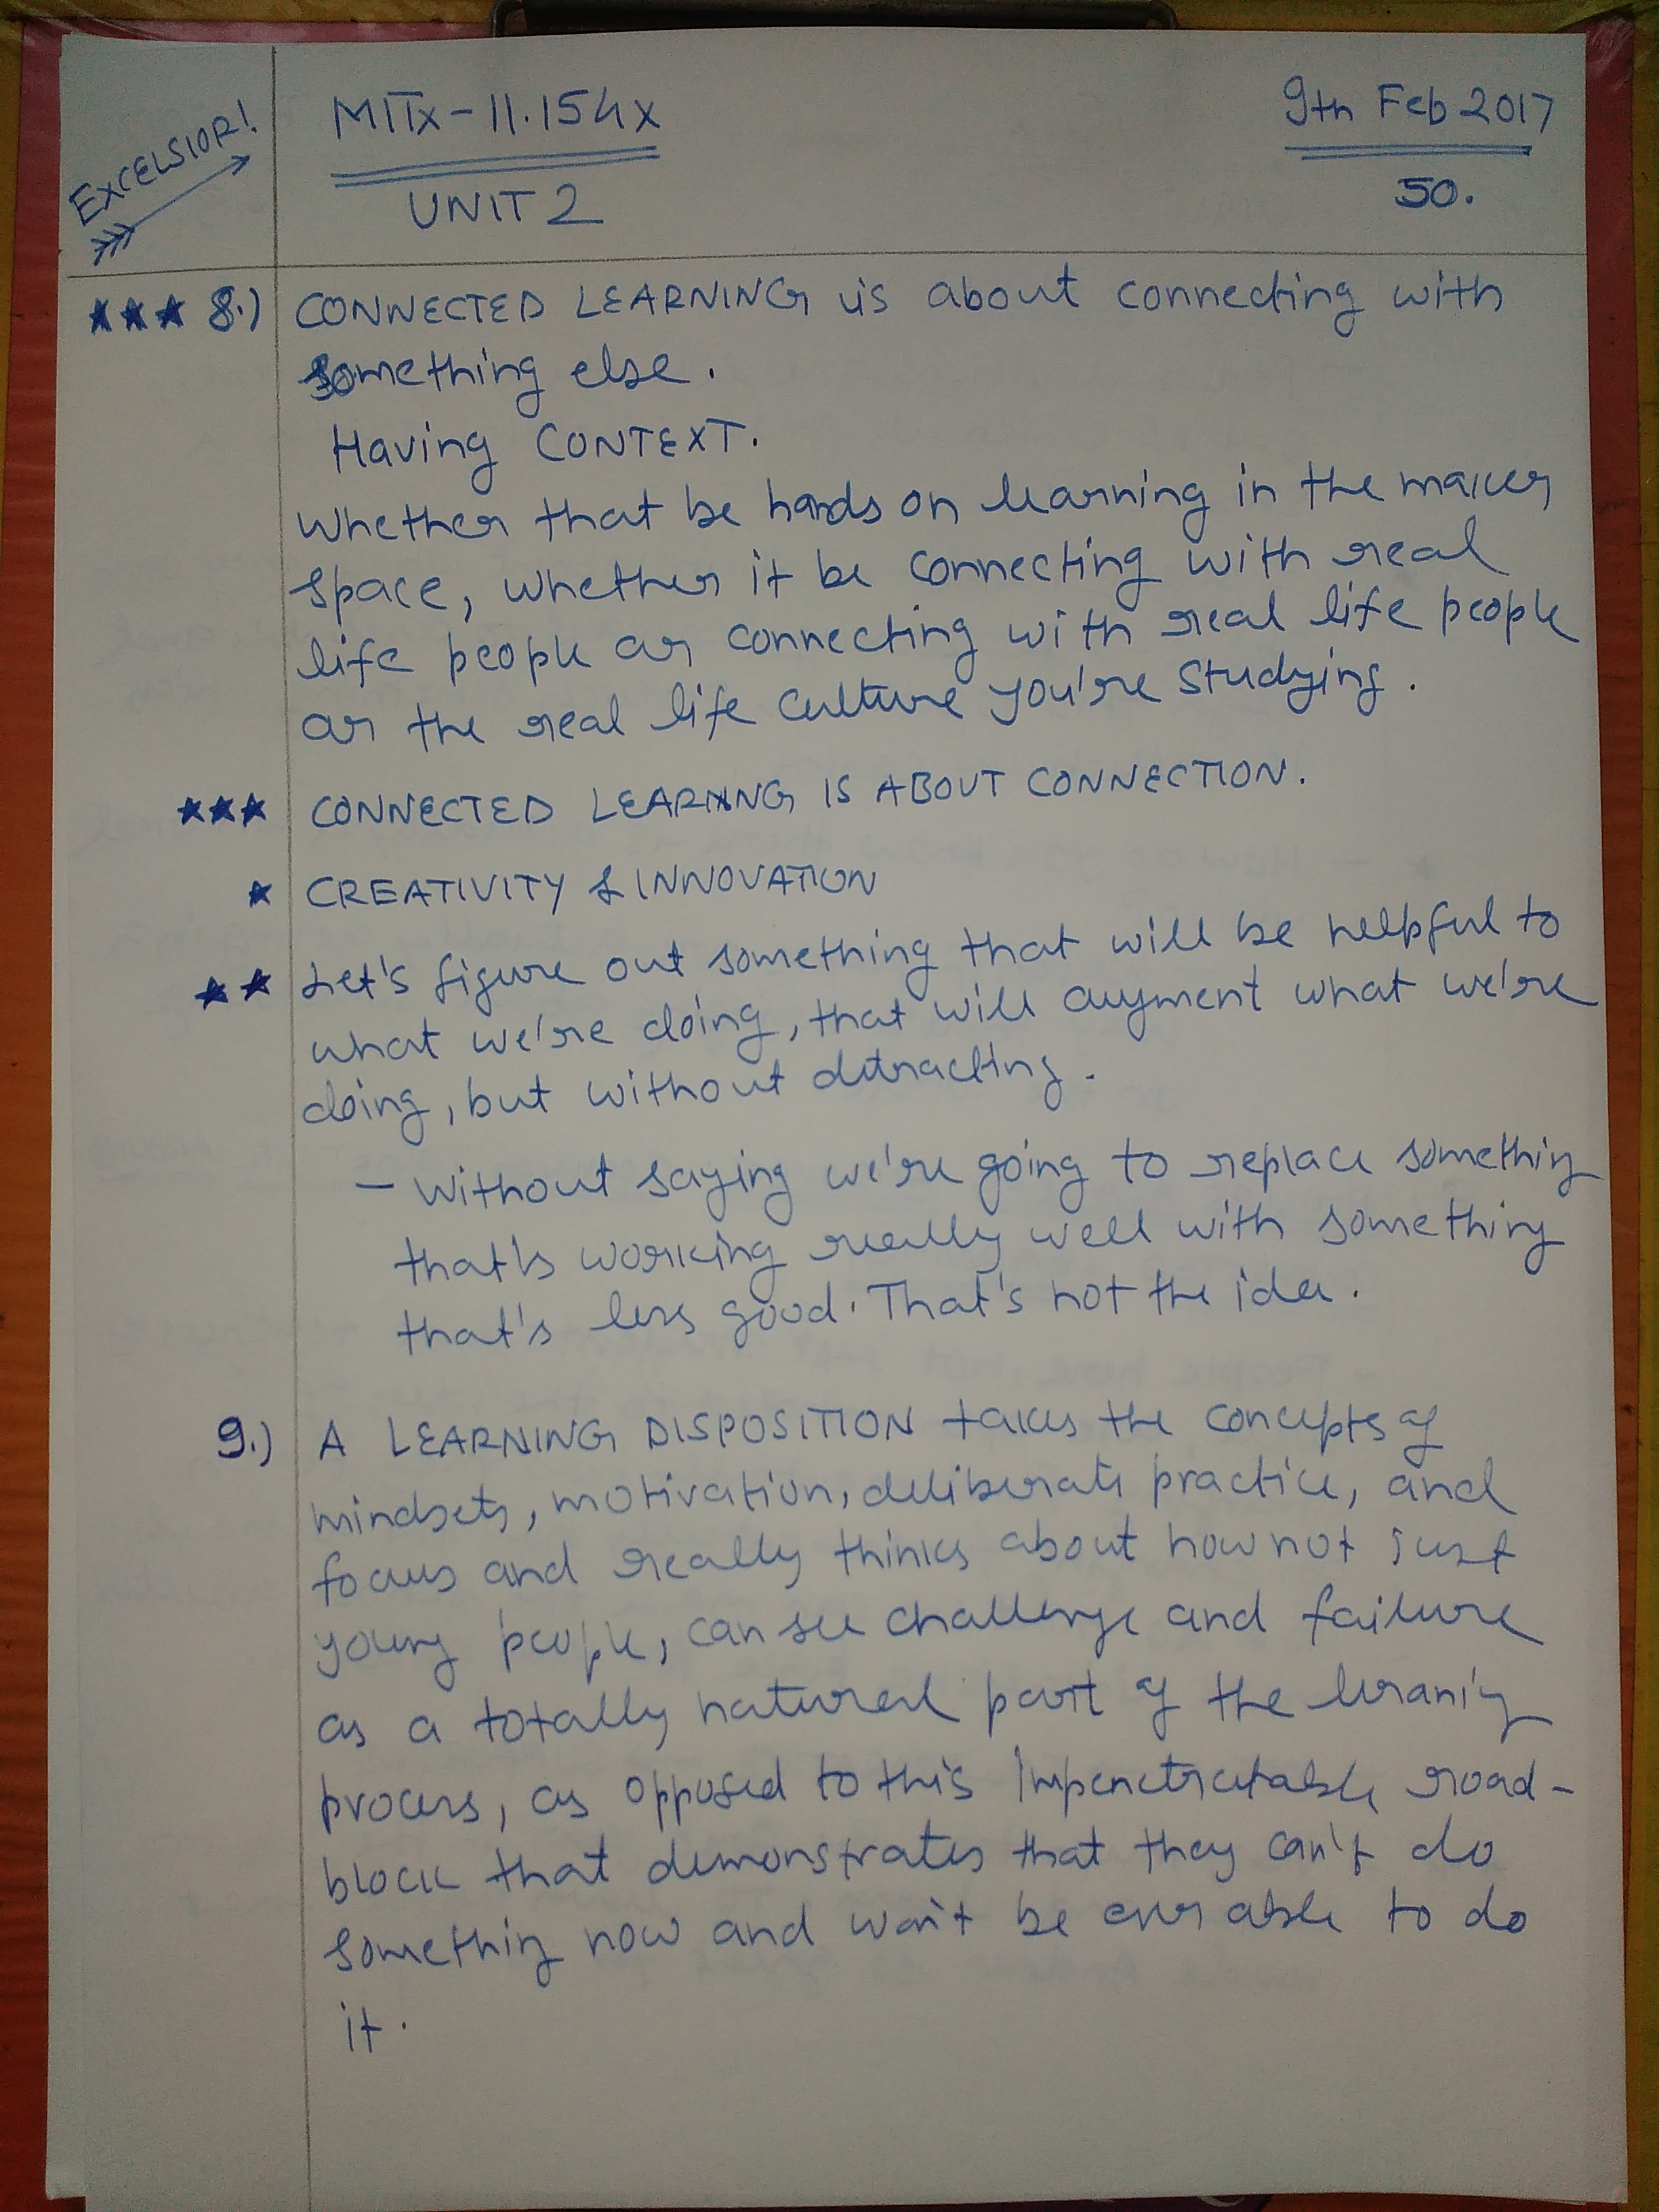 EXCELSIOR!
MITx-11.154x
9th Feb 2017
UNIT 2
50.
★★★ 8.) CONNECTED LEARNING is about connecting with
something else.
Having CONTEXT.
Whether that be hands on learning in the maker
space, whether it be connecting with real
life people or connecting with real life people
or the real life culture you're studying.
★★★ CONNECTED LEARNING IS ABOUT CONNECTION.
★ CREATIVITY & INNOVATION
★★ Let's figure out something that will be helpful to
what we're doing, that will augment what we're
doing, but without detracting.
- Without saying we're going to replace something
that's working really well with something
that's less good. That's not the idea.
9.) A LEARNING DISPOSITION takes the concepts of
mindsets, motivation, deliberate practice, and
focus and really thinks about how not just
young people, can see challenge and failure
as a totally natural part of the learning
process, as opposed to this impenetratable road-
block that demonstrates that they can't do
something now and won't be ever able to do
it.